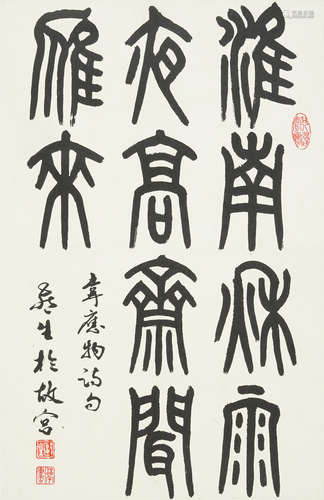 淮南秋雨
夜高齋聞
雁來
韋應物詩句
燕生於故宮